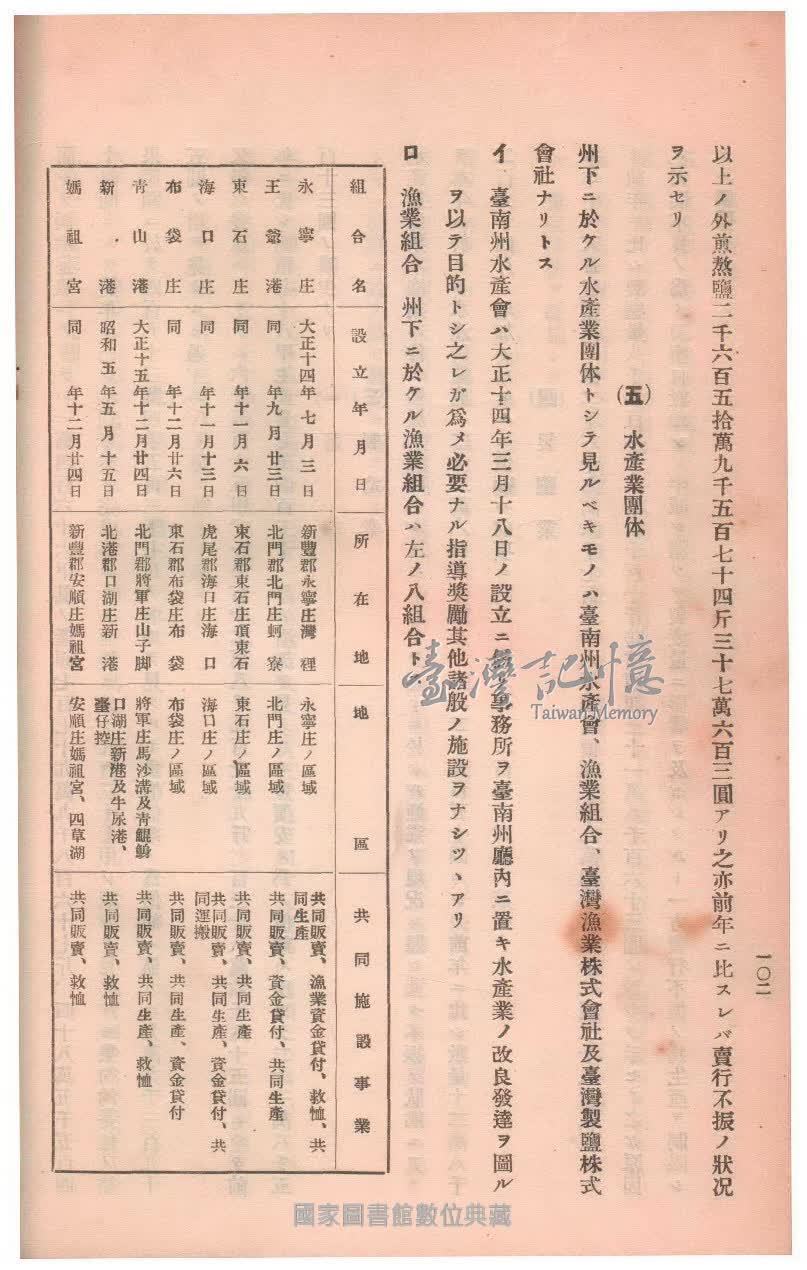 以上ノ外煎熬鹽二千六百五拾萬九千五百七十四斤三十七萬六百三圓アリ之亦前年ニ比スレバ賣行不振ノ狀况
ヲ示セリ
(五) 水產業團体
州下ニ於ケル水產業團体トシテ見ルベキモノハ臺南州水產會、漁業組合、臺灣漁業株式會社及臺灣製鹽株式
會社ナリトス
イ 臺南州水產會ハ大正十四年三月十八日ノ設立ニ係リ事務所ヲ臺南州廳內ニ置キ水產業ノ改良發達ヲ圖ル
ヲ以テ目的トシ之レガ爲メ必要ナル指導奬勵其他諸般ノ施設ヲナシツヽアリ
ロ 漁業組合 州下ニ於ケル漁業組合ハ左ノ八組合トス
組合名 設立年月日 所在地 地區 共同施設事業
永寧庄 大正十四年七月三日 新豐郡永寧庄灣裡 永寧庄ノ區域 共同販賣、漁業資金貸付、救恤、共同生產
王爺港 同年九月廿三日 北門郡北門庄蚵寮 北門庄ノ區域 共同販賣、資金貸付、共同生產
東石庄 同年十一月六日 東石郡東石庄頂東石 東石庄ノ區域 共同販賣、共同生產
海口庄 同年十一月十三日 虎尾郡海口庄海口 海口庄ノ區域 共同販賣、共同生產、資金貸付、共同運搬
布袋庄 同年十二月廿六日 東石郡布袋庄布袋 布袋庄ノ區域 共同販賣、共同生產、資金貸付
青山港 大正十五年十二月廿四日 北門郡將軍庄山子脚 將軍庄馬沙溝及青鯤鯓 共同販賣、共同生產、救恤
新港 昭和五年五月十五日 北港郡口湖庄新港 口湖庄新港及牛尿港、臺仔挖 共同販賣、救恤
媽祖宮 同年十二月廿四日 新豐郡安順庄媽祖宮 安順庄媽祖宮、四草湖 共同販賣、救恤
一〇二
臺灣記憶
Taiwan Memory
國家圖書館數位典藏